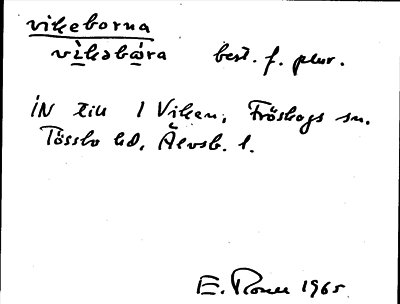 vikeborna
vikəbωra best. f. plur.
IN till 1 Viken, Fröskogs sn.
Tössbo hd, Älvsb. l.
E. 1965